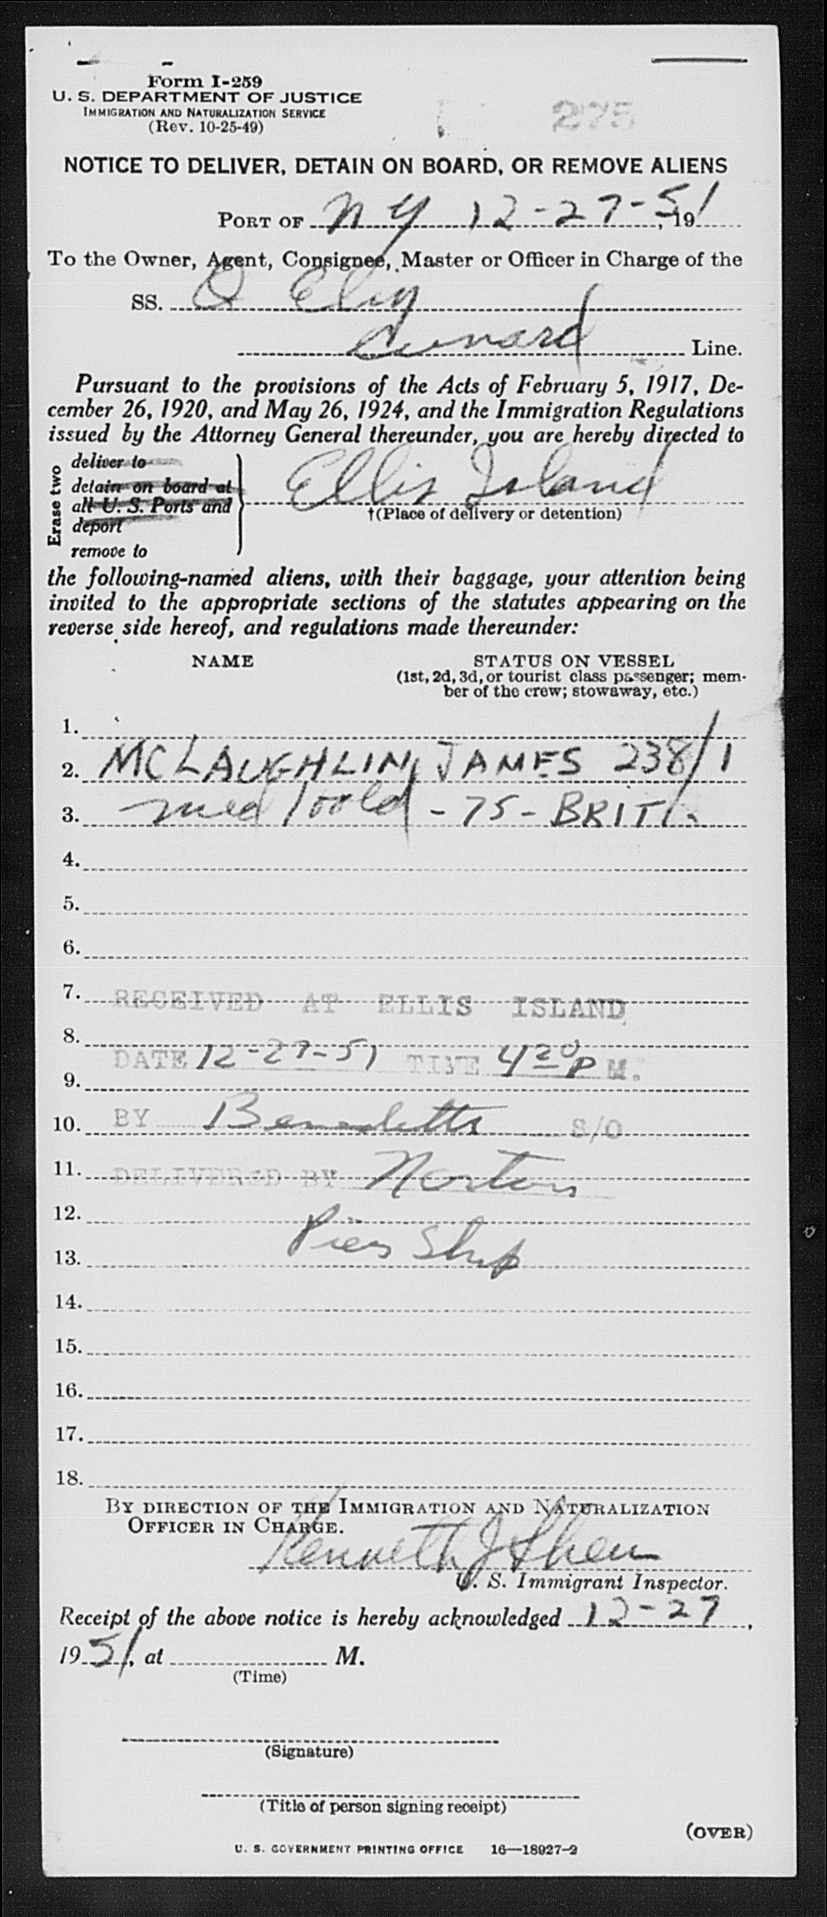 Form I-259
U. S. DEPARTMENT OF JUSTICE
IMMIGRATION AND NATURALIZATION SERVICE
(Rev. 10-25-49)
275
NOTICE TO DELIVER, DETAIN ON BOARD, OR REMOVE ALIENS
PORT OF NY 12-27-51, 19
To the Owner, Agent, Consignee, Master or Officer in Charge of the
SS. Q Eliz
Cunard Line.
Pursuant to the provisions of the Acts of February 5, 1917, De-
cember 26, 1920, and May 26, 1924, and the Immigration Regulations
issued by the Attorney General thereunder, you are hereby directed to
Erase two
deliver to
detain on board at
all U. S. Ports and
deport
remove to
Ellis Island
†(Place of delivery or detention)
the following-named aliens, with their baggage, your attention being
invited to the appropriate sections of the statutes appearing on the
reverse side hereof, and regulations made thereunder:
NAME STATUS ON VESSEL
(1st, 2d, 3d, or tourist class passenger; mem-
ber of the crew; stowaway, etc.)
1.
2. MCLAUGHLIN, JAMES 238/1
3. med - 75 - BRIT.
4.
5.
6.
7. RECEIVED AT ELLIS ISLAND
8.
DATE 12-27-51 TIME 4 20 P M.
9.
10. BY S/O
11. DELIVERED BY Norton
12.
13. Pier
14.
15.
16.
17.
18.
BY DIRECTION OF THE IMMIGRATION AND NATURALIZATION
OFFICER IN CHARGE.
Kenneth J
U. S. Immigrant Inspector.
Receipt of the above notice is hereby acknowledged 12-27,
1951, at M.
(Time)
(Signature)
(Title of person signing receipt)
(OVER)
U. S. GOVERNMENT PRINTING OFFICE 16—18927-2